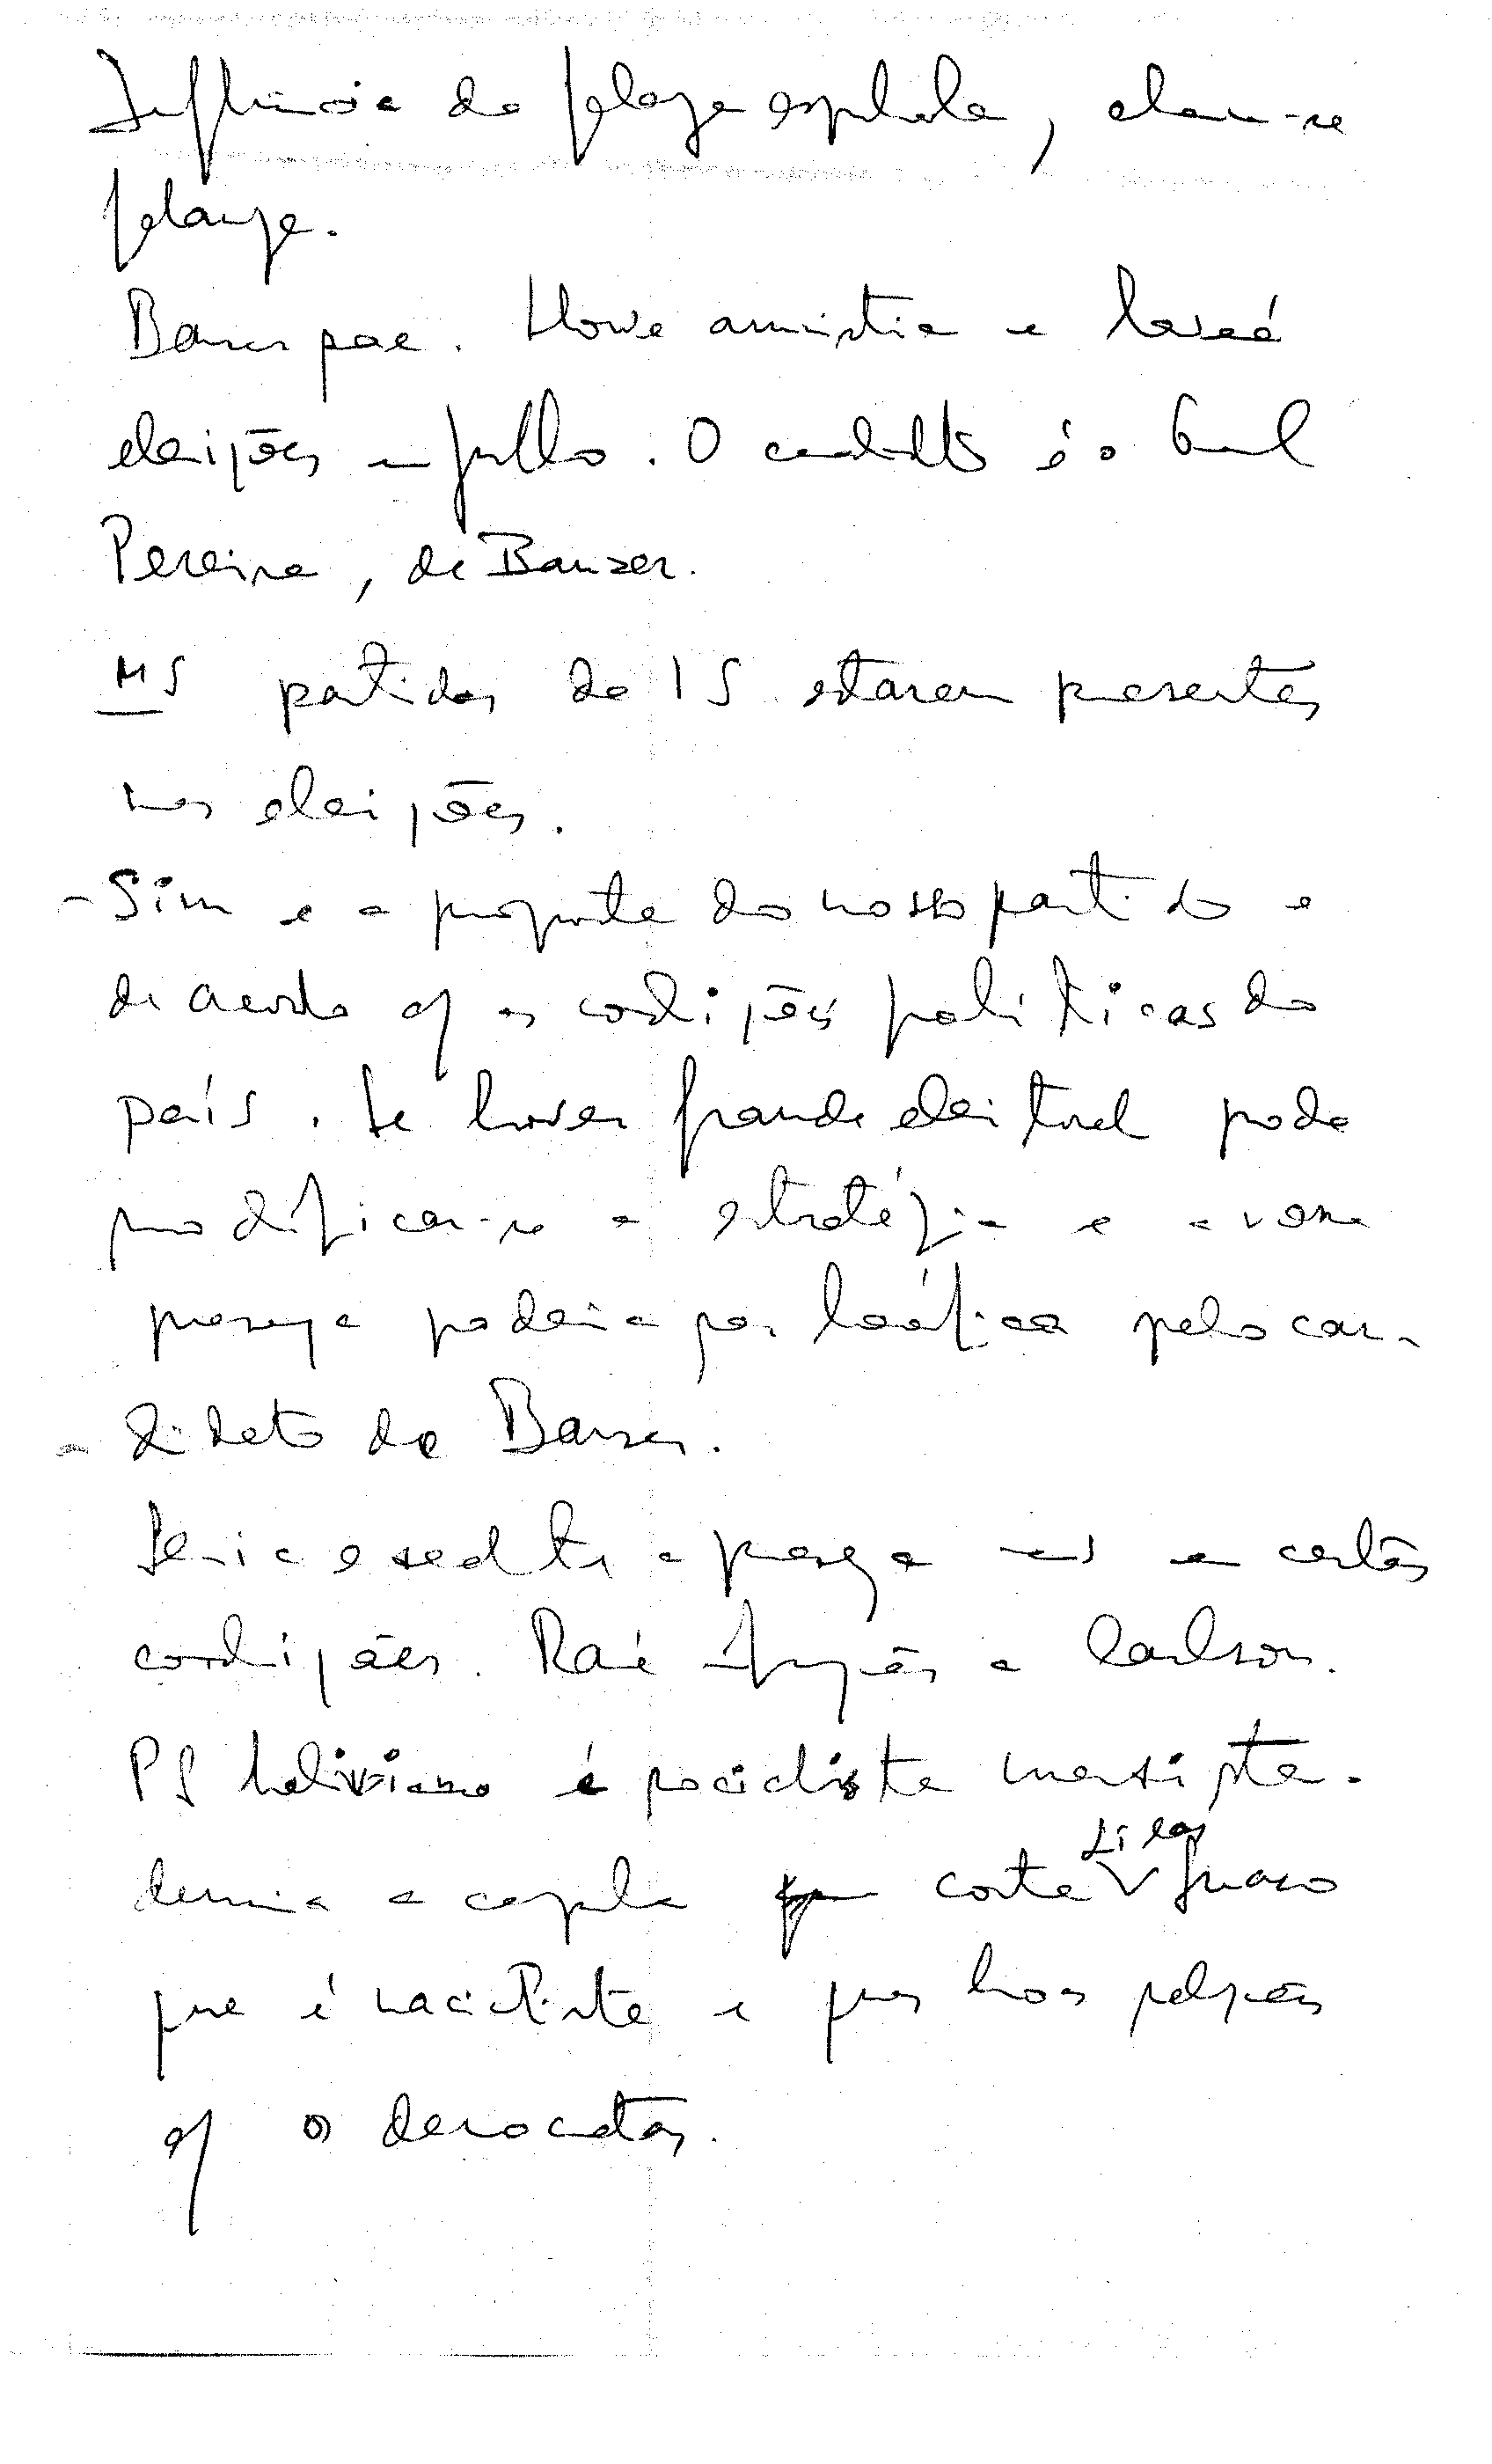 Influência da falange espanhola, chama-se
falange.
Banzer pae. Houve amnistia e haverá
eleições em julho. O candidato é o Genl
Pereira, de Banzer.
MS partidos da IS estarem presentes
nas eleições.
- Sim e a proposta do nosso partido e
de acordo c/ as condições políticas do
país. Se houver fraude eleitoral pode
modificar-se a estratégia e a vossa
presença poderia ser pelo can-
- didato do Banzer.
Seria a presença em certas
condições. informações a Carlsson.
PS boliviano é socialista marxista.
corte Siles Suazo
que é nacionalista e que boas relações
c/ os democratas.